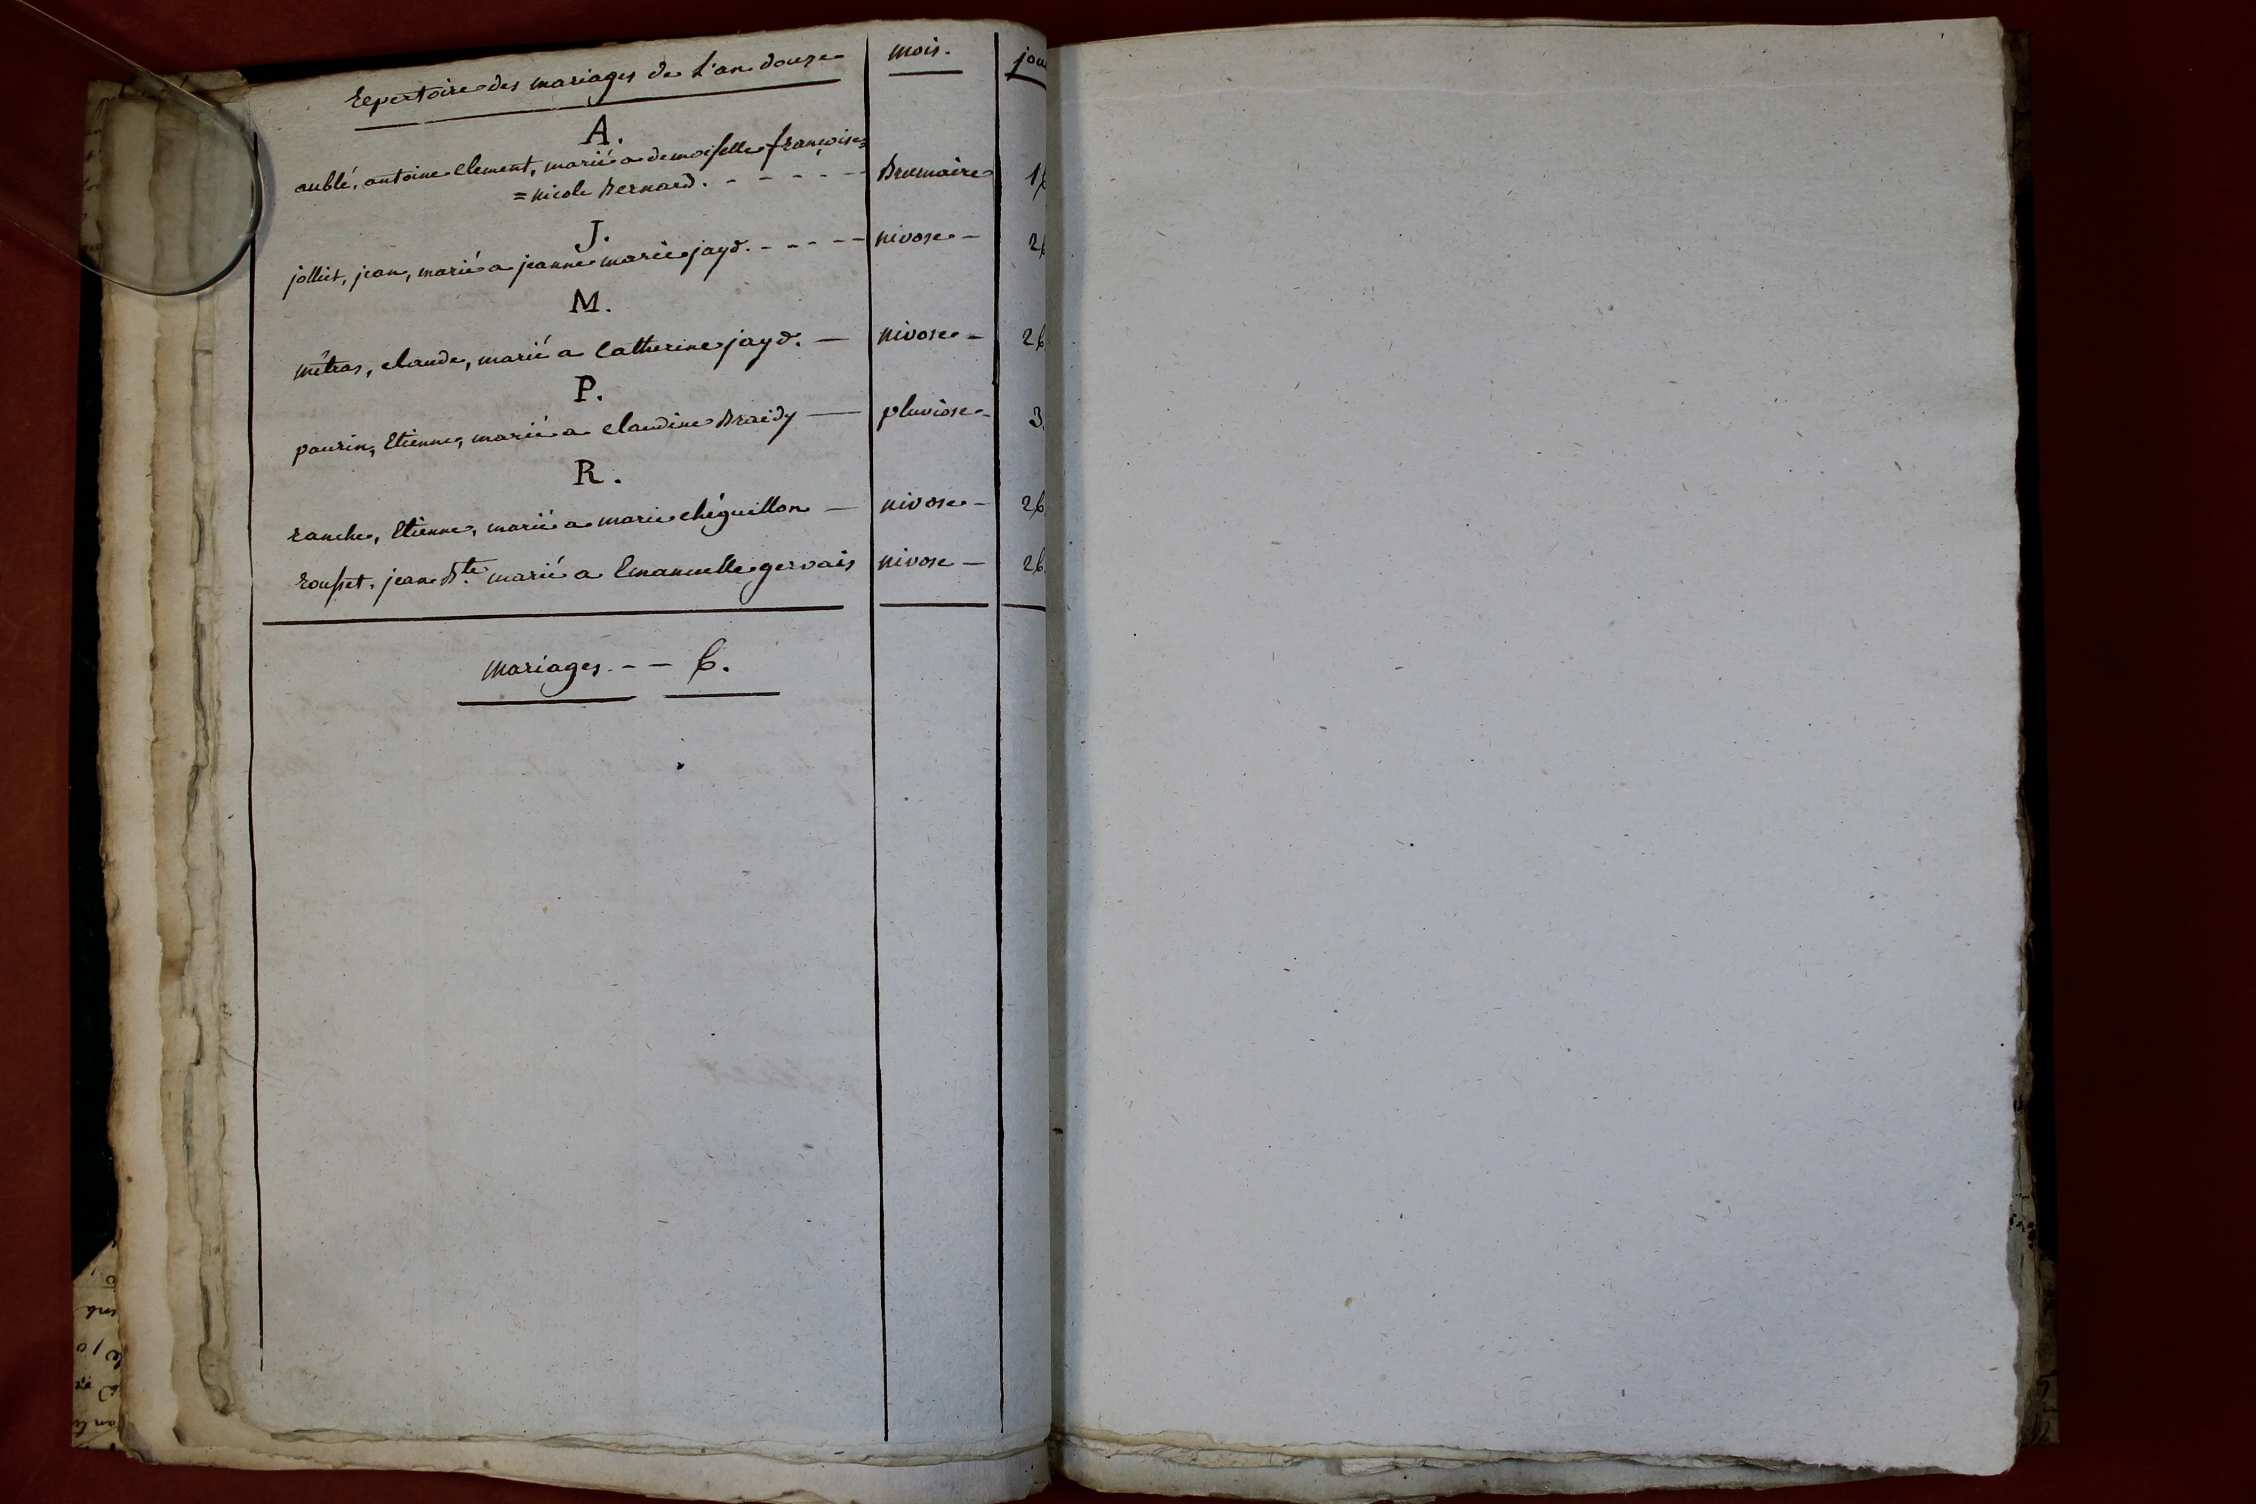 Repertoire des mariages de L'an douze
mois.
jou
A.
aublé, antoine Clement, marié a demoiselle françoise=
=nicole Bernard. - - - - - - Brumaire 16
J.
jolliet, jean, marié a jeanne marie jayd. - - - - - nivose - 26
M.
métras, claude, marié a Catherine jayd. — nivose - 26
P.
paurin, Etienne, marié a claudine Braidy — pluviose - 3.
R.
ranche, Etienne, marié a marie chéguillon — nivose - 26.
rousset, jean Bte. marié a Emanuelle gervais nivose — 26.
mariages. - - 6.